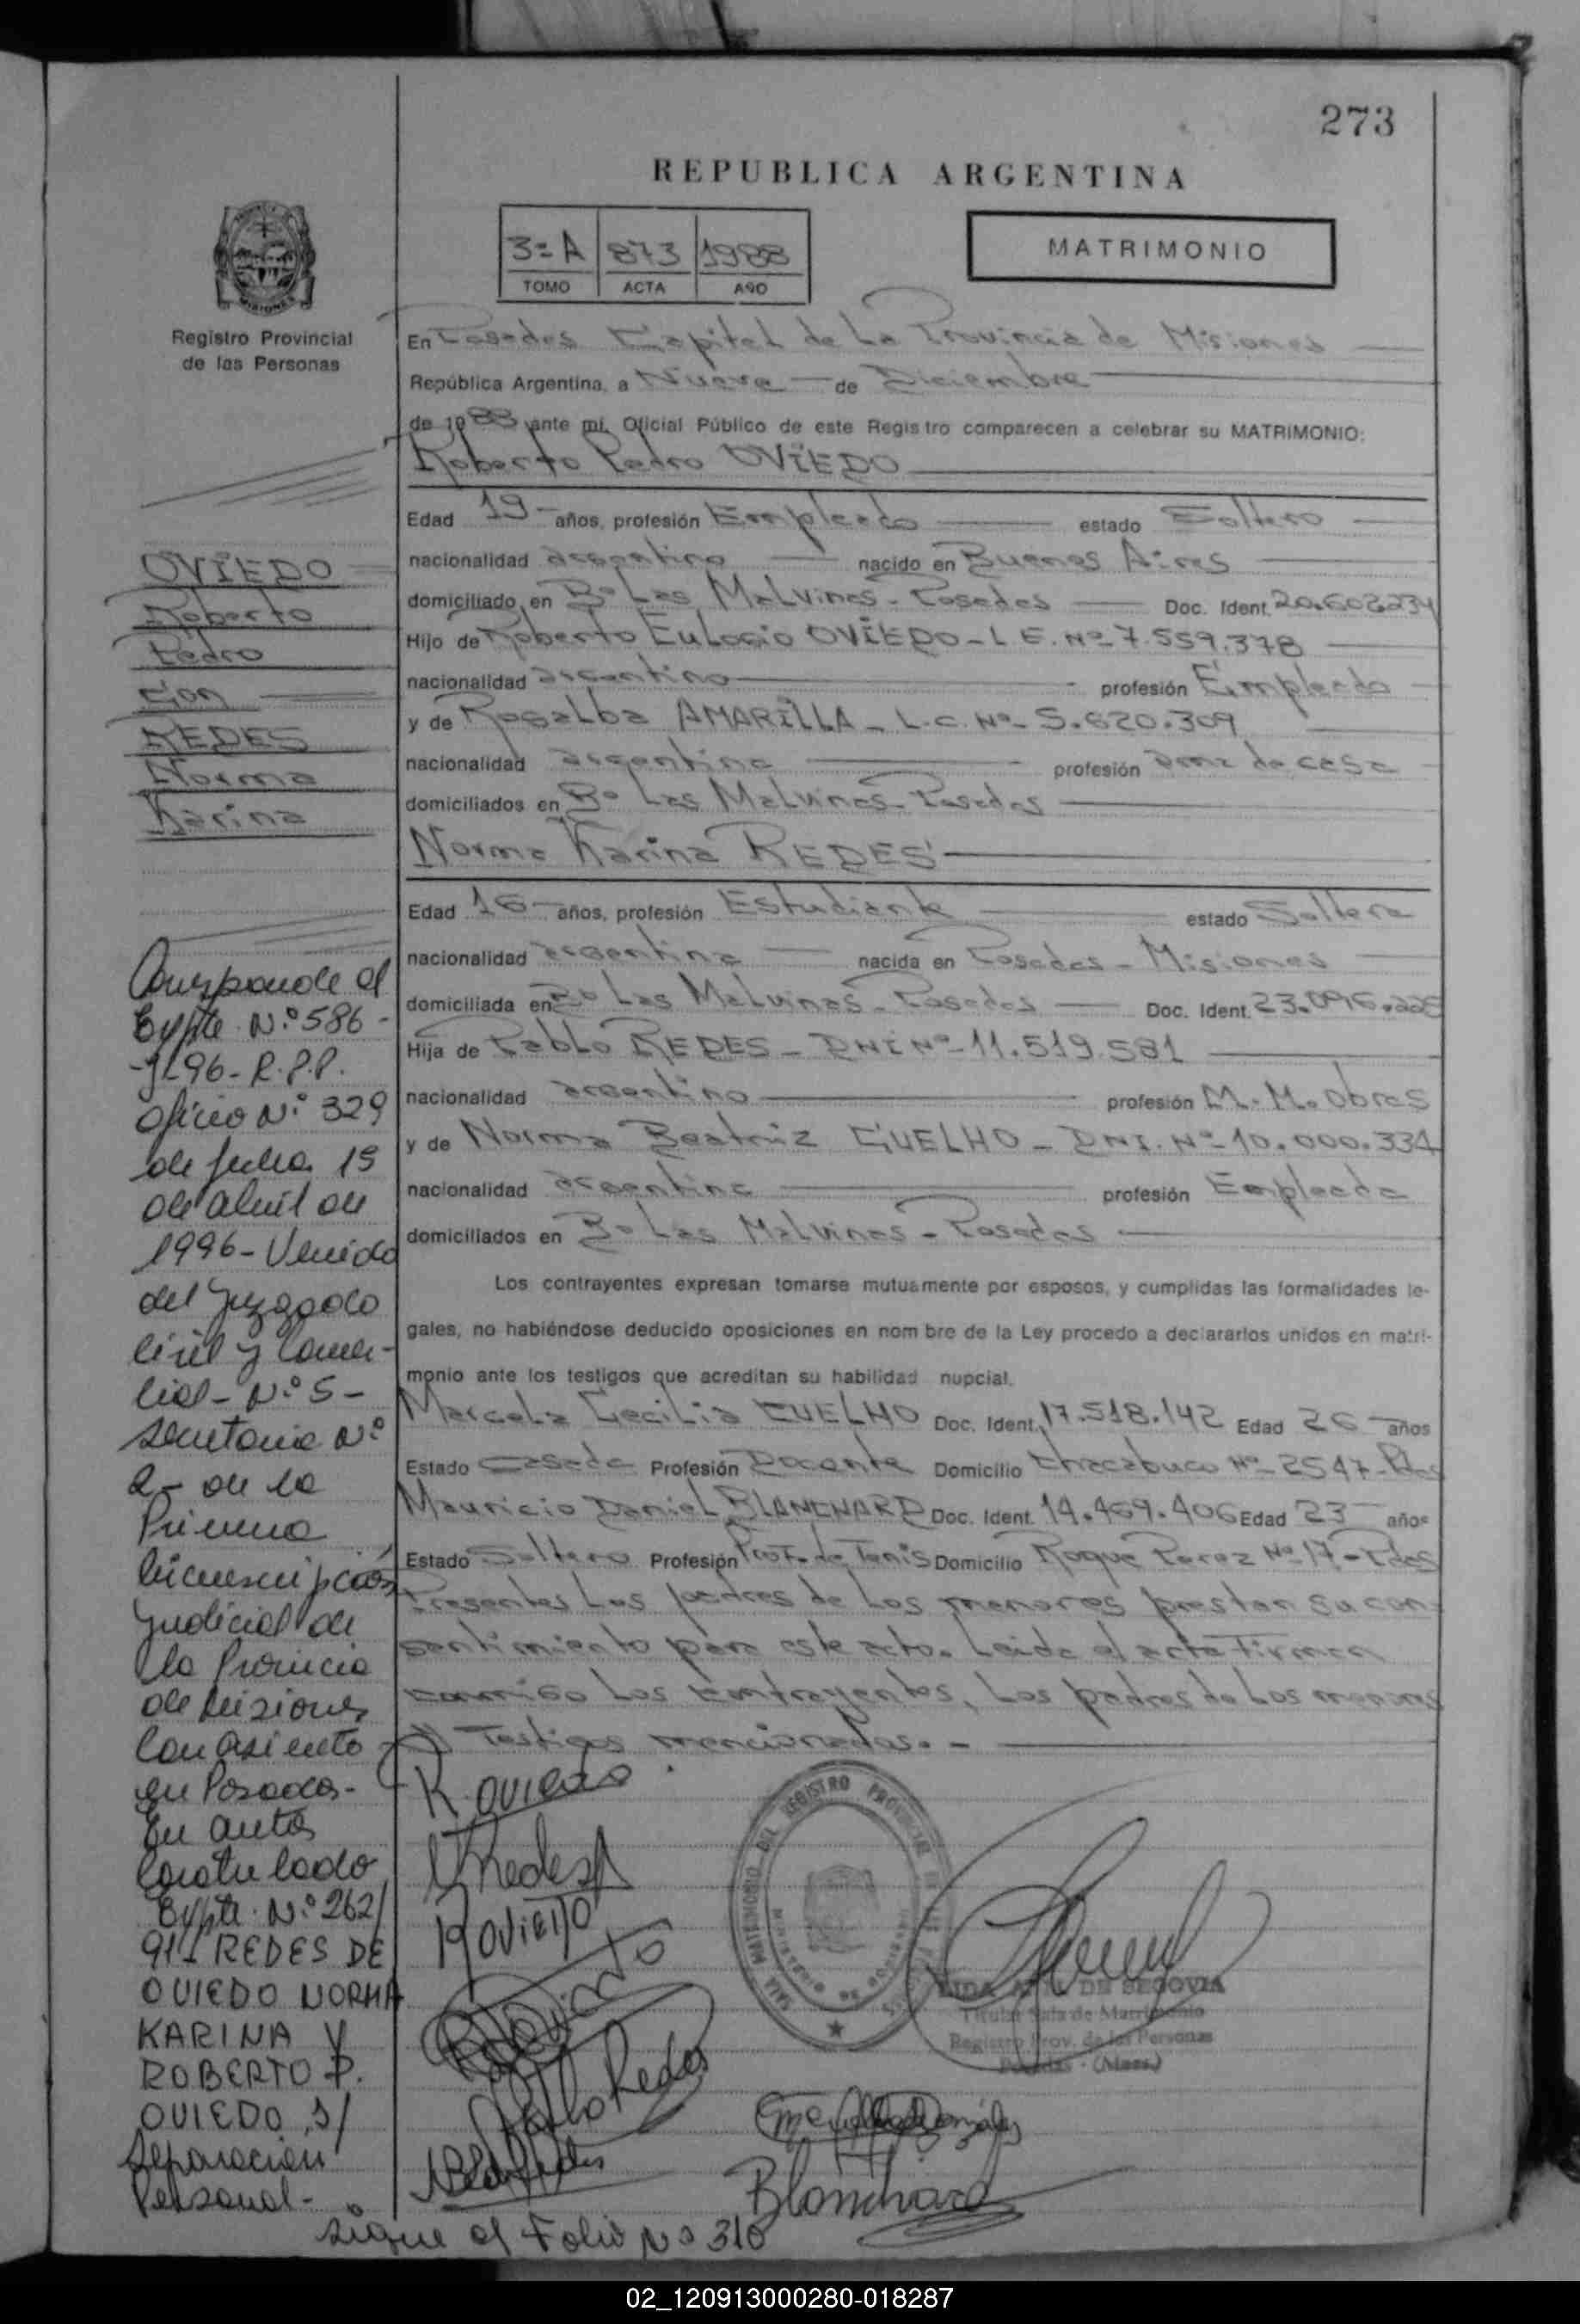 273
REPUBLICA ARGENTINA
3º A 873 1988
TOMO ACTA AÑO
MATRIMONIO
MISIONES
Registro Provincial
de las Personas
En Posadas Capital de La Provincia de Misiones
República Argentina, a Nueve de Diciembre
de 1988 ante mí, Oficial Público de este Registro comparecen a celebrar su MATRIMONIO:
Roberto Pedro OVIEDO
Edad 19 años, profesión Empleado estado Soltero
nacionalidad argentino nacido en Buenos Aires
domiciliado en Bº Las Malvinas - Posadas Doc. Ident. 20.602.234
Hijo de Roberto Eulogio OVIEDO - L.E. Nº 7.559.378
nacionalidad argentino profesión Empleado
y de Rosalba AMARILLA - L.C. Nº 5.620.309
nacionalidad argentina profesión ama de casa
domiciliados en Bº Las Malvinas - Posadas
Norma Karina REDES
Edad 16 años, profesión Estudiante estado Soltera
nacionalidad argentina nacida en Posadas - Misiones
domiciliada en Bº Las Malvinas - Posadas Doc. Ident. 23.096.225
Hija de Pablo REDES - DNI Nº 11.519.581
nacionalidad argentino profesión M. M. Obras
y de Norma Beatriz CUELHO - DNI. Nº 10.000.334
nacionalidad argentina profesión Empleada
domiciliados en Bº Las Malvinas - Posadas
Los contrayentes expresan tomarse mutuamente por esposos, y cumplidas las formalidades le-
gales, no habiéndose deducido oposiciones en nombre de la Ley procedo a declararlos unidos en matri-
monio ante los testigos que acreditan su habilidad nupcial.
Marcela Cecilia CUELHO Doc. Ident. 17.518.142 Edad 26 años
Estado Casada Profesión Docente Domicilio Chacabuco Nº 2547 - Pdas
Mauricio Daniel BLANCHARD Doc. Ident. 14.469.406 Edad 23 años
Estado Soltero Profesión Prof. de Tenis Domicilio Roque Perez Nº 17 - Pdas
Presentes Los padres de Los menores prestan su con-
sentimiento para este acto. Leída el acta Firman
conmigo Los Contrayentes, Los padres de Los menores
y Testigos mencionados. -
OVIEDO
Roberto
Pedro
con
REDES
Norma
Karina
Corresponde al
Expte. Nº 586 -
-J-96- R.P.P.
Oficio Nº 329
de fecha 19
de abril de
1996 - Venido
del Juzgado
Civil y Comer-
cial - Nº 5 -
Secretaria Nº
2 - de la
Primera
Circunscripción
Judicial de
la Provincia
de Misiones
Con asiento
en Posadas -
En autos
Caratulado
Expte. Nº 262/
91 - REDES DE
OVIEDO NORMA
KARINA Y
ROBERTO P.
OVIEDO S/
Separacion
Personal -
Sigue al Folio Nº 310
R. Oviedo
Redes
R OVIEDO
Pablo Redes
Blanchard
SALA MATRIMONIO DEL REGISTRO PROVINCIAL DE LAS PERSONAS
DE SEGOVIA
Titular Sala de Matrimonio
Registro Prov. de las Personas
Posadas - (Mnes.)
02_120913000280-018287